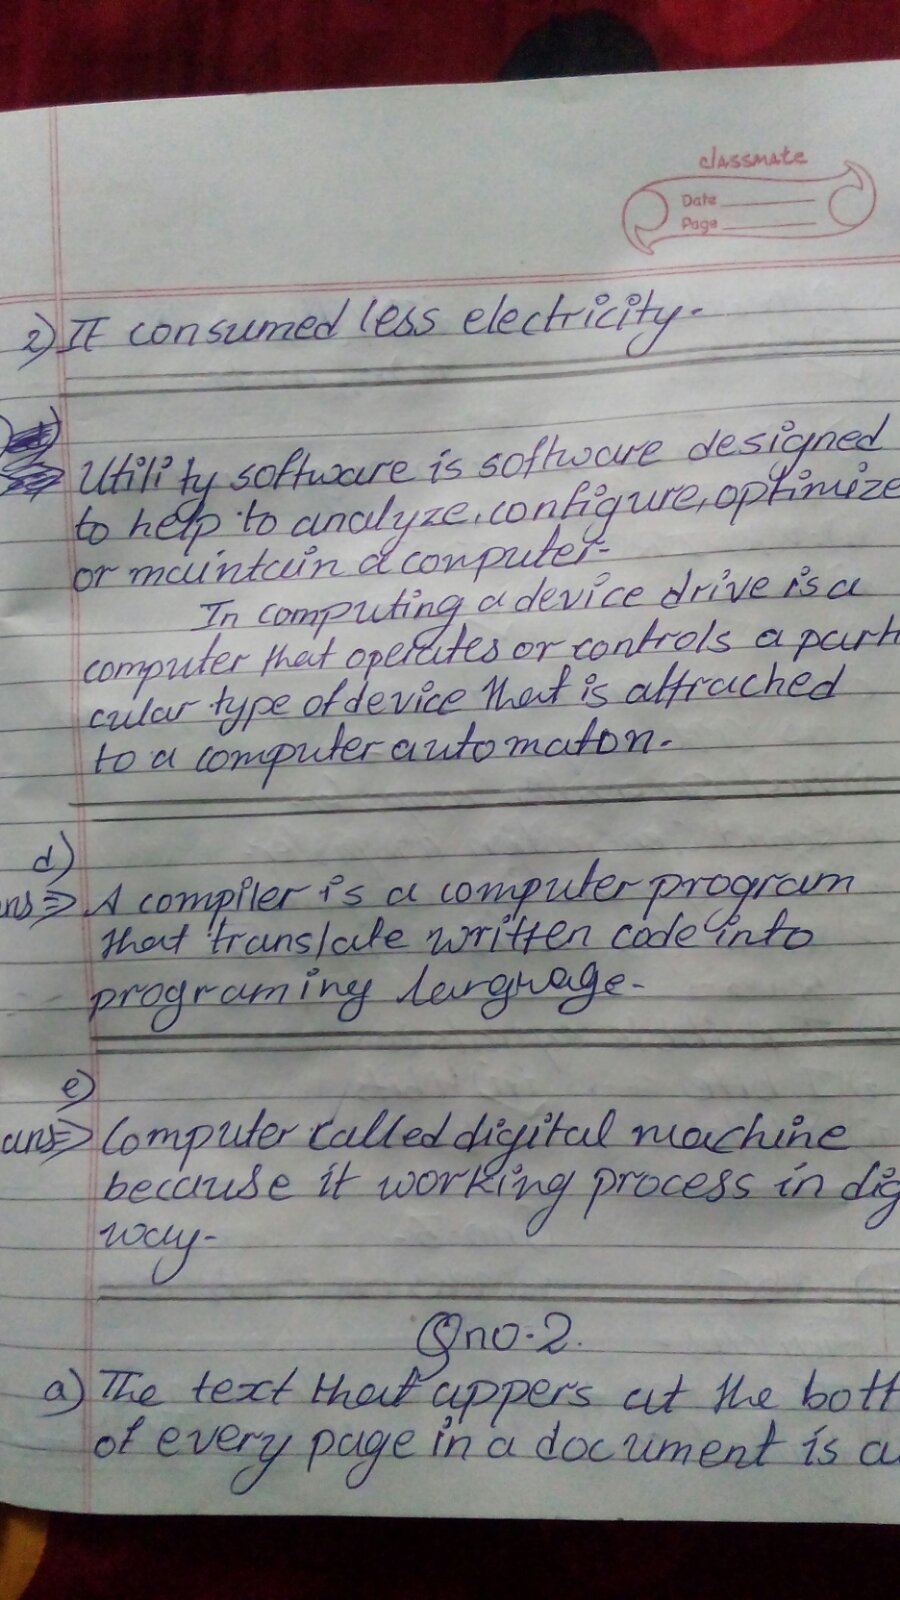 classmate
Date
Page
2) It consumed less electricity.
Utility software is software designed
to help to analyze, configure, optimize
or maintain a computer.
In computing a device drive is a
computer that operates or controls a parti
cular type of device that is attrached
to a computer automaton.
d)
ans⇒ A compiler is a computer program
that translate written code into
programing language.
e)
ans⇒ Computer called digital machine
because it working process in dig
way.
Qno.2.
a) The text that appers at the bott
of every page in a document is a